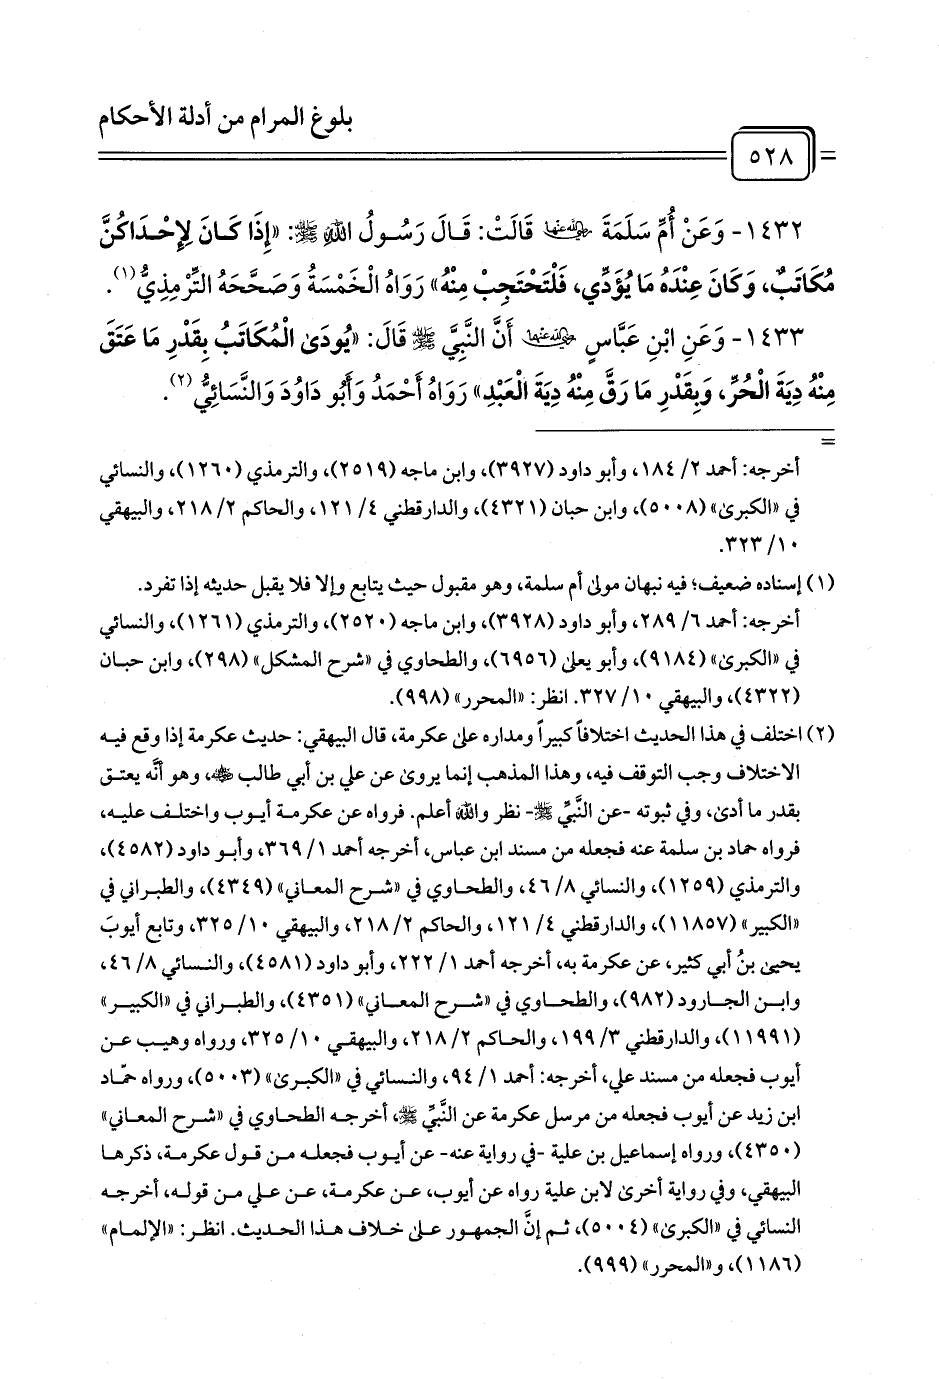 بلوغ المرام من أدلة الأحكام
٥٢٨
١٤٣٢- وَعَنْ أُمِّ سَلَمَةَ رضي الله عنها قَالَتْ: قَالَ رَسُولُ اللهِ ﷺ: «إِذَا كَانَ لِإِحْدَاكُنَّ
مُكَاتَبٌ، وَكَانَ عِنْدَهُ مَا يُؤَدِّي، فَلْتَحْتَجِبْ مِنْهُ» رَوَاهُ الْخَمْسَةُ وَصَحَّحَهُ التِّرْمِذِيُّ(١).
١٤٣٣- وَعَنِ ابْنِ عَبَّاسٍ رضي الله عنهما أَنَّ النَّبِيَّ ﷺ قَالَ: «يُودَى الْمُكَاتَبُ بِقَدْرِ مَا عَتَقَ
مِنْهُ دِيَةَ الْحُرِّ، وَبِقَدْرِ مَا رَقَّ مِنْهُ دِيَةَ الْعَبْدِ» رَوَاهُ أَحْمَدُ وَأَبُو دَاوُدَ وَالنَّسَائِيُّ(٢).
=
أخرجه: أحمد ٢/ ١٨٤، وأبو داود (٣٩٢٧)، وابن ماجه (٢٥١٩)، والترمذي (١٢٦٠)، والنسائي
في «الكبرى» (٥٠٠٨)، وابن حبان (٤٣٢١)، والدارقطني ٤/ ١٢١، والحاكم ٢/ ٢١٨، والبيهقي
١٠/ ٣٢٣.
(١) إسناده ضعيف؛ فيه نبهان مولى أم سلمة، وهو مقبول حيث يتابع وإلا فلا يقبل حديثه إذا تفرد.
أخرجه: أحمد ٦/ ٢٨٩، وأبو داود (٣٩٢٨)، وابن ماجه (٢٥٢٠)، والترمذي (١٢٦١)، والنسائي
في «الكبرى» (٩١٨٤)، وأبو يعلى (٦٩٥٦)، والطحاوي في «شرح المشكل» (٢٩٨)، وابن حبان
(٤٣٢٢)، والبيهقي ١٠/ ٣٢٧. انظر: «المحرر» (٩٩٨).
(٢) اختلف في هذا الحديث اختلافاً كبيراً ومداره على عكرمة، قال البيهقي: حديث عكرمة إذا وقع فيه
الاختلاف وجب التوقف فيه، وهذا المذهب إنما يروى عن علي بن أبي طالب رضي الله عنه، وهو أنَّه يعتق
بقدر ما أدى، وفي ثبوته -عن النَّبِيِّ ﷺ- نظر والله أعلم. فرواه عن عكرمة أيوب واختلف عليه،
فرواه حماد بن سلمة عنه فجعله من مسند ابن عباس، أخرجه أحمد ١/ ٣٦٩، وأبو داود (٤٥٨٢)،
والترمذي (١٢٥٩)، والنسائي ٨/ ٤٦، والطحاوي في «شرح المعاني» (٤٣٤٩)، والطبراني في
«الكبير» (١١٨٥٧)، والدارقطني ٤/ ١٢١، والحاكم ٢/ ٢١٨، والبيهقي ١٠/ ٣٢٥، وتابع أيوبَ
يحيى بنُ أبي كثير، عن عكرمة به، أخرجه أحمد ١/ ٢٢٢، وأبو داود (٤٥٨١)، والنسائي ٨/ ٤٦،
وابن الجارود (٩٨٢)، والطحاوي في «شرح المعاني» (٤٣٥١)، والطبراني في «الكبير»
(١١٩٩١)، والدارقطني ٣/ ١٩٩، والحاكم ٢/ ٢١٨، والبيهقي ١٠/ ٣٢٥، ورواه وهيب عن
أيوب فجعله من مسند علي، أخرجه: أحمد ١/ ٩٤، والنسائي في «الكبرى» (٥٠٠٣)، ورواه حمّاد
ابن زيد عن أيوب فجعله من مرسل عكرمة عن النَّبِيِّ ﷺ، أخرجه الطحاوي في «شرح المعاني»
(٤٣٥٠)، ورواه إسماعيل بن علية -في رواية عنه- عن أيوب فجعله من قول عكرمة، ذكرها
البيهقي، وفي رواية أخرى لابن علية رواه عن أيوب، عن عكرمة، عن علي من قوله، أخرجه
النسائي في «الكبرى» (٥٠٠٤)، ثم إنَّ الجمهور على خلاف هذا الحديث. انظر: «الإلمام»
(١١٨٦)، و«المحرر» (٩٩٩).